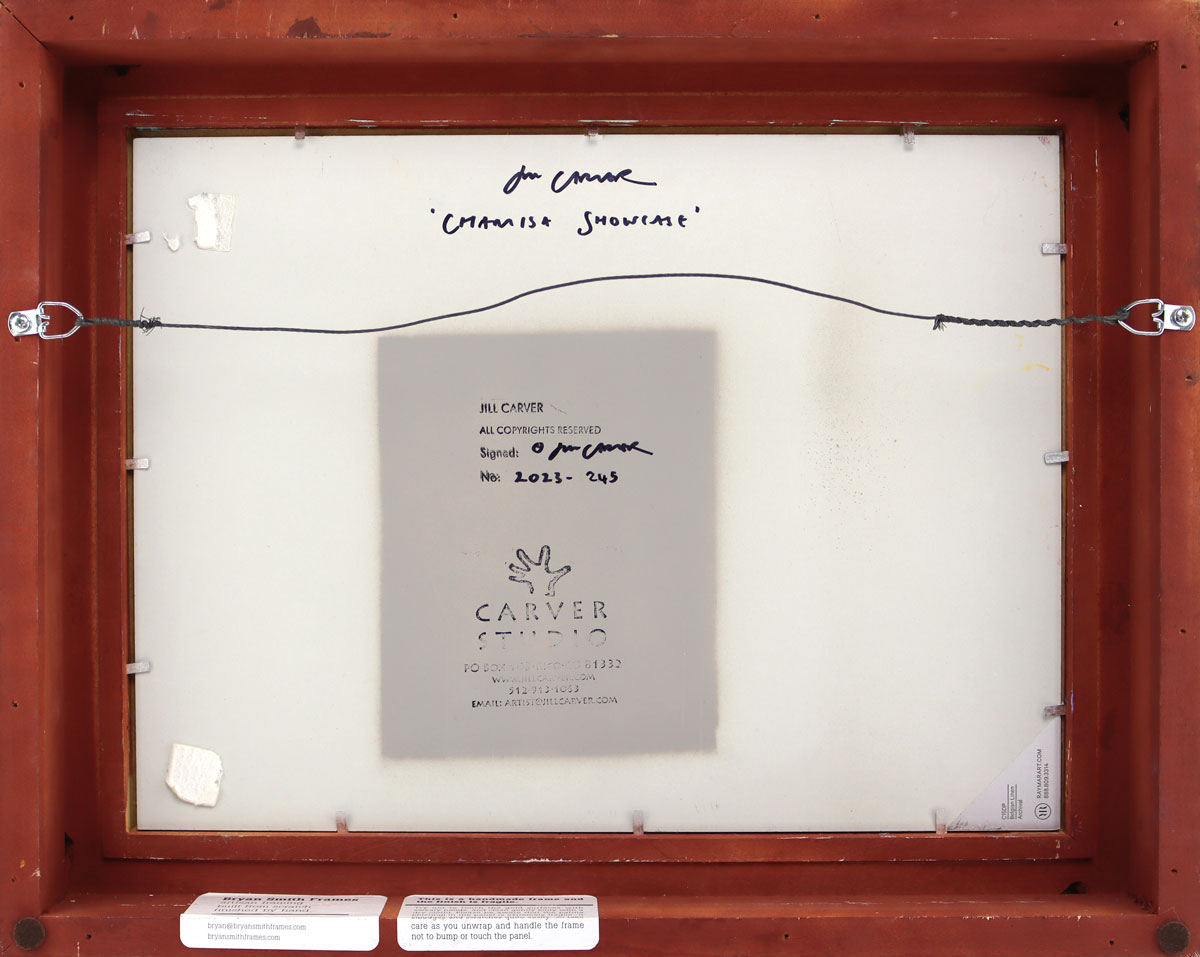 Jill CARVER
'CHAMISA SHOWCASE'
JILL CARVER
ALL COPYRIGHTS RESERVED
Signed: © Jill CARVER
No: 2023 - 245
CARVER
STUDIO
PO BOX CO 81332
WWW.JILLCARVER.COM
512-913-1053
EMAIL: ARTIST@JILLCARVER.COM
CTSDP
Belgian Linen
Archival
RAYMARART.COM
888.809.3314
Bryan Smith Frames
artisan framing
built from scratch
finished by hand
bryan@bryansmithframes.com
bryansmithframes.com
This is a handmade frame and
the finish is fragile.
care as you unwrap and handle the frame
not to bump or touch the panel.